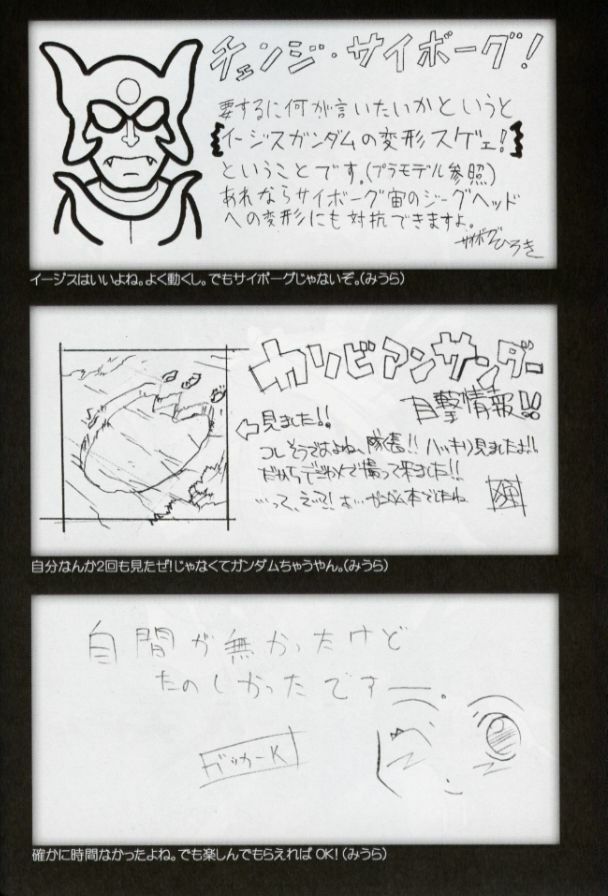 チェンジ・サイボーグ!
要するに何が言いたいかというと
イージスガンダムの変形スゲェ!
ということです。(プラモデル参照)
あれならサイボーグ宙のジーグヘッド
への変形にも対抗できますよ。
サイボーグひろき
イージスはいいよね。よく動くし。でもサイボーグじゃないぞ。(みうら)
カリビアンサンダー
目撃情報!!
見ました!!
コレそうですよね、隊長!! ハッキリ見ましたよ!!
だからデジカメで撮って来ました!!
…って、えっ!? あ…ガンダム本でしたね
自分なんか2回も見たぜ!じゃなくてガンダムちゃうやん。(みうら)
自間が無かったけど
たのしかったです
ガッカーK
確かに時間なかったよね。でも楽しんでもらえれば OK!(みうら)